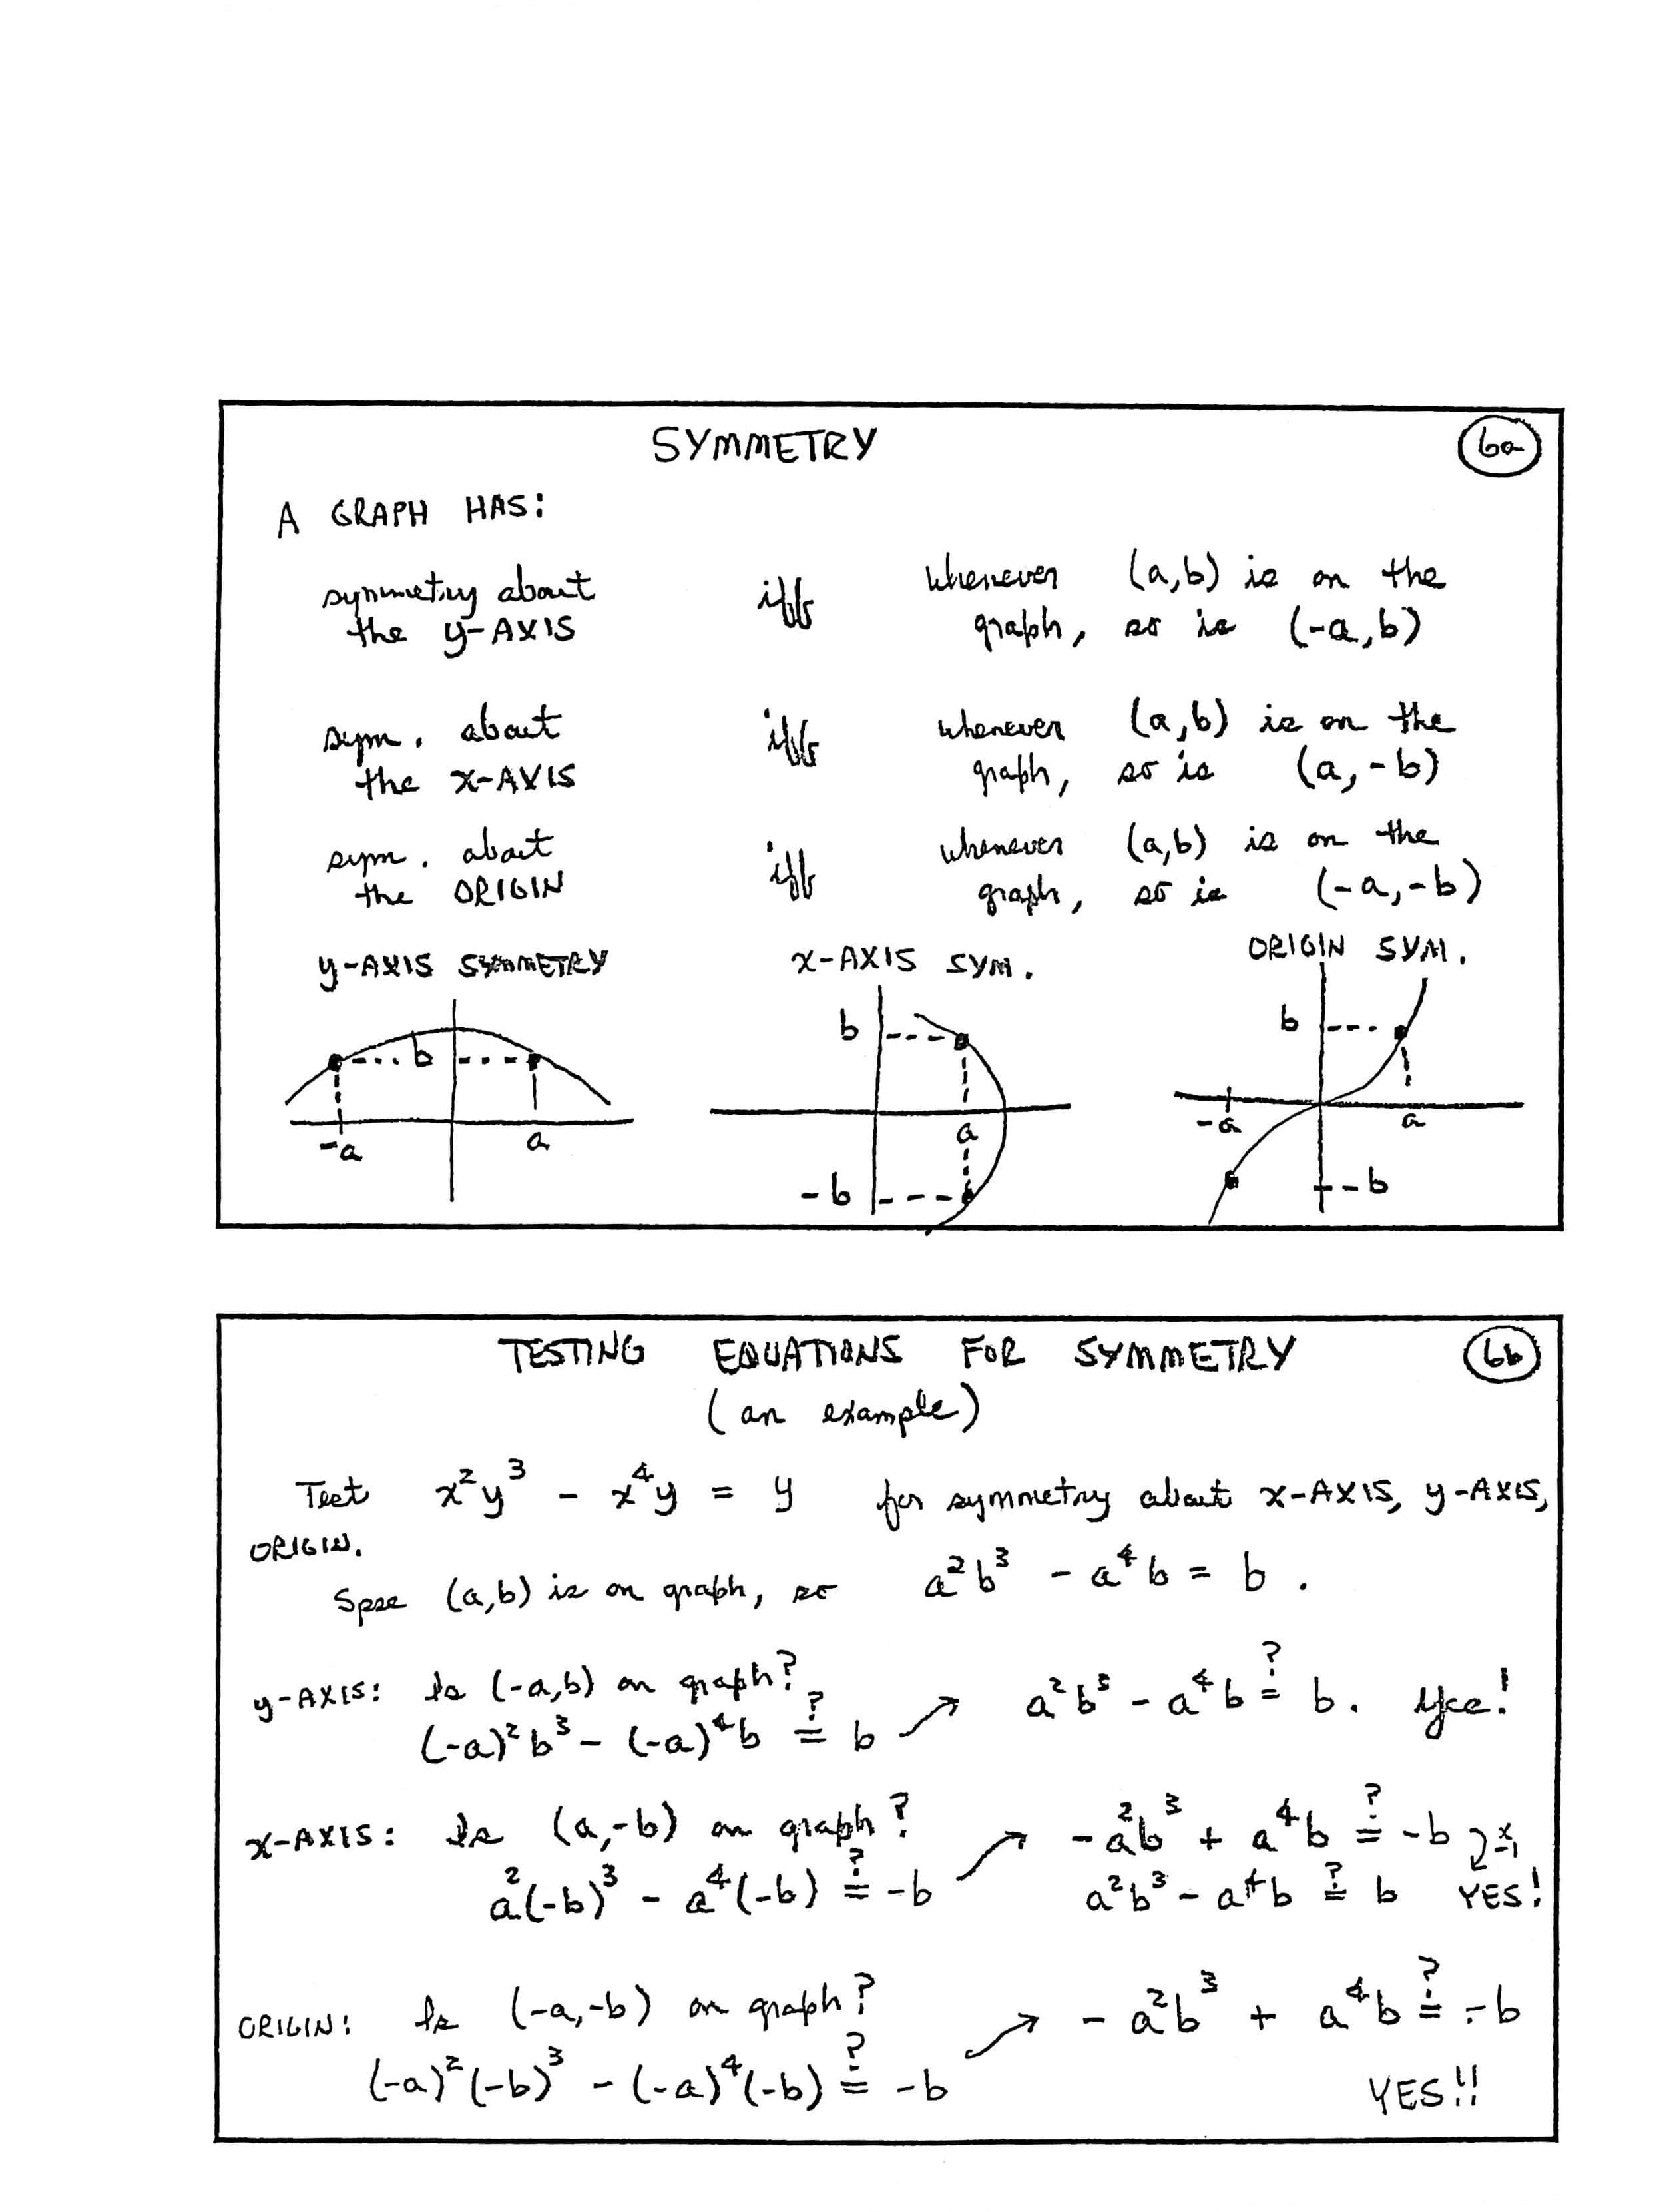 SYMMETRY
6a
A GRAPH HAS:
symmetry about iff whenever (a,b) is on the
the y-AXIS graph, so is (-a,b)
sym. about iff whenever (a,b) is on the
the x-AXIS graph, so is (a,-b)
sym. about iff whenever (a,b) is on the
the ORIGIN graph, so is (-a,-b)
y-AXIS SYMMETRY
b
-a a
x-AXIS SYM.
b
a
-b
ORIGIN SYM.
b
-a a
-b
TESTING EQUATIONS FOR SYMMETRY
6b
(an example)
Test x²y³ - x⁴y = y for symmetry about x-AXIS, y-AXIS,
ORIGIN.
Spse (a,b) is on graph, so a²b³ - a⁴b = b.
y-AXIS: Is (-a,b) on graph?
(-a)²b³ - (-a)⁴b ?= b → a²b³ - a⁴b ?= b. Yes!
x-AXIS: Is (a,-b) on graph? → -a²b³ + a⁴b ?= -b ×-1
a²(-b)³ - a⁴(-b) ?= -b a²b³ - a⁴b ?= b YES!
ORIGIN: Is (-a,-b) on graph? → -a²b³ + a⁴b ?= -b
(-a)²(-b)³ - (-a)⁴(-b) ?= -b YES!!